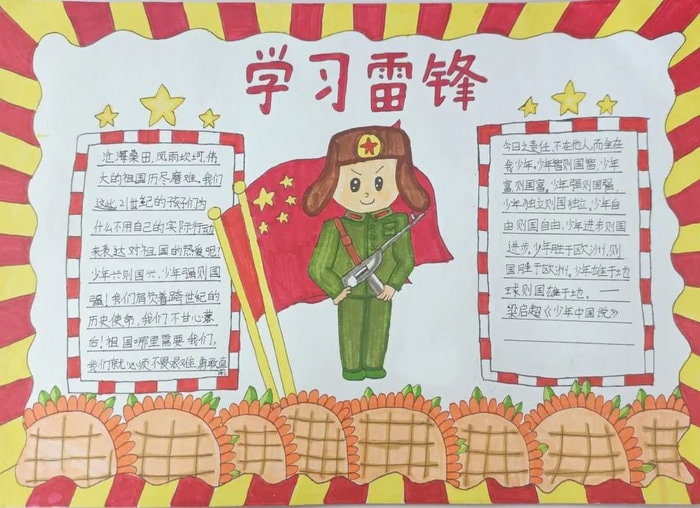 学习雷锋
沧海桑田,风雨坎坷,伟
大的祖国历尽磨难。我们
这些21世纪的孩子们为
什么不用自己的实际行动
来表达对祖国的热爱呢?
少年兴则国兴,少年强则国
强!我们肩负着跨世纪的
历史使命,我们不甘心落
台!祖国哪里需要我们,
我们就必须不畏艰难,勇敢直
今日之责任,不在他人,而全在
我少年。少年智则国智,少年
富则国富。少年强则国强,
少年独立则国独立,少年自
由则国自由,少年进步则国
进步,少年胜于欧洲,则
国胜于欧洲。少年雄于地
球则国雄于地。——
梁启超《少年中国说》